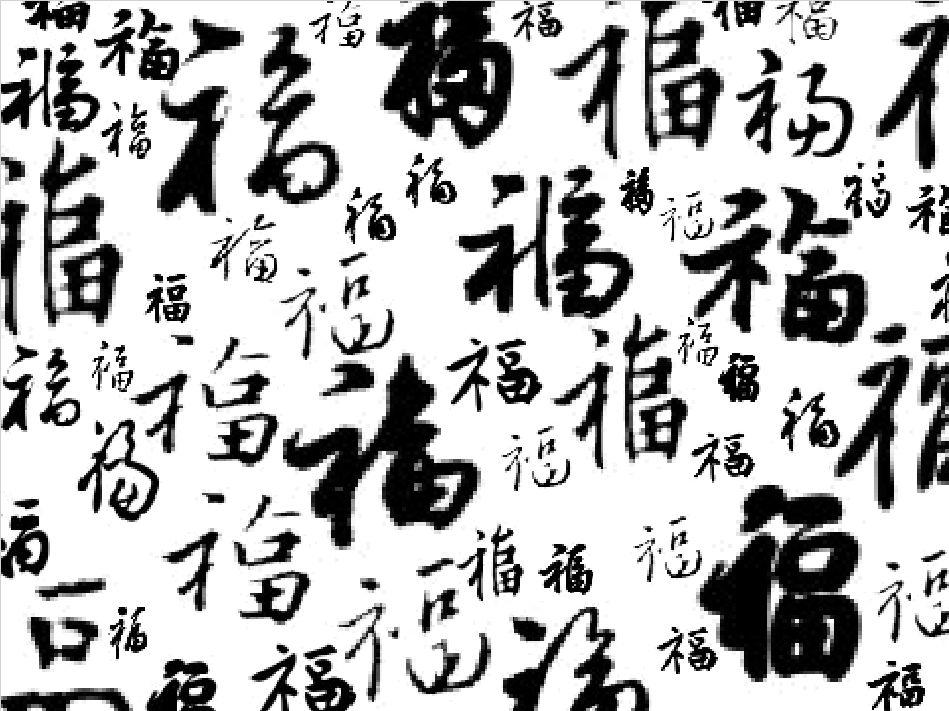 福 福 福 福 福 福 福 福
福 福 福 福
福 福 福 福 福 福
福 福 福 福 福 福
福 福 福 福 福 福 福
福 福 福 福 福 福
福 福 福 福 福 福 福
福 福 福 福 福 福 福